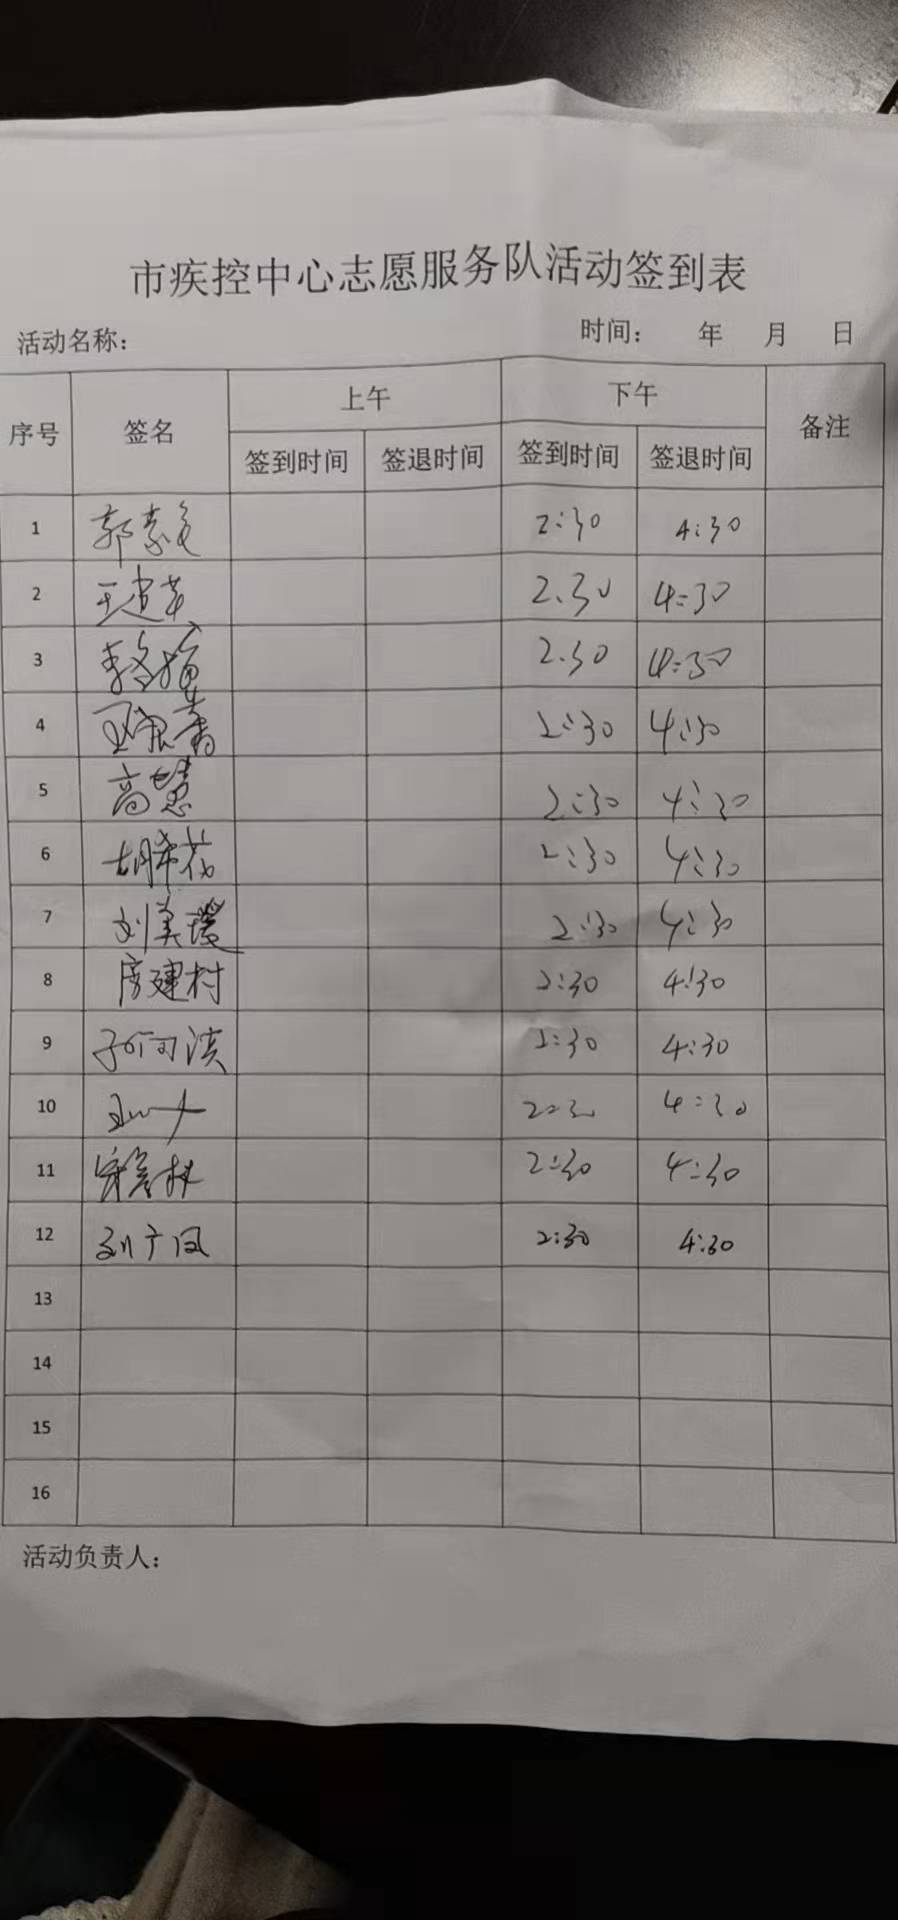 市疾控中心志愿服务队活动签到表
活动名称： 时间： 年 月 日
序号 签名 上午 下午 备注
签到时间 签退时间 签到时间 签退时间
1 2:30 4:30
2 2.30 4:30
3 2.30 4:30
4 2:30 4:30
5 高慧 2:30 4:30
6 2:30 4:30
7 刘美瑷 2:30 4:30
8 房建村 2:30 4:30
9 2:30 4:30
10 2:30 4:30
11 2:30 4:30
12 刘广凤 2:30 4:30
13
14
15
16
活动负责人：